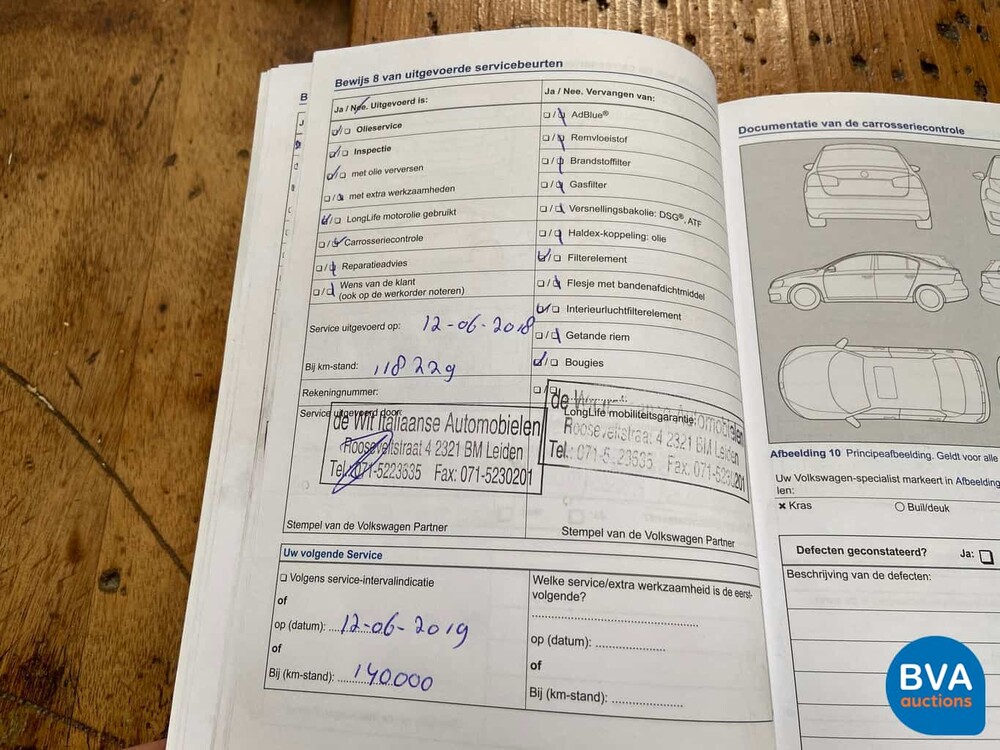 Bewijs 8 van uitgevoerde servicebeurten
Ja / Nee. Uitgevoerd is:
Olieservice
Inspectie
met olie verversen
met extra werkzaamheden
LongLife motorolie gebruikt
Carrosseriecontrole
Reparatieadvies
Wens van de klant
(ook op de werkorder noteren)
Service uitgevoerd op: 12-06-2018
Bij km-stand: 118229
Rekeningnummer:
Service uitgevoerd door:
de Wit Italiaanse Automobielen
Rooseveltstraat 4 2321 BM Leiden
Tel.: 071-5223635 Fax: 071-5230201
Stempel van de Volkswagen Partner
Ja / Nee. Vervangen van:
AdBlue®
Remvloeistof
Brandstoffilter
Gasfilter
Versnellingsbakolie: DSG®, ATF
Haldex-koppeling: olie
Filterelement
Flesje met bandenafdichtmiddel
Interieurluchtfilterelement
Getande riem
Bougies
LongLife mobiliteitsgarantie:
de Wit Italiaanse Automobielen
Rooseveltstraat 4 2321 BM Leiden
Tel.: 071-5223635 Fax: 071-5230201
Stempel van de Volkswagen Partner
Uw volgende Service
Volgens service-intervalindicatie
of
op (datum): 12-06-2019
of
Bij (km-stand): 140.000
Welke service/extra werkzaamheid is de eerst-
volgende?
op (datum):
of
Bij (km-stand):
Documentatie van de carrosseriecontrole
Afbeelding 10 Principeafbeelding. Geldt voor alle
Uw Volkswagen-specialist markeert in Afbeelding
len:
× Kras
Buil/deuk
Defecten geconstateerd? Ja:
Beschrijving van de defecten:
BVA
auctions